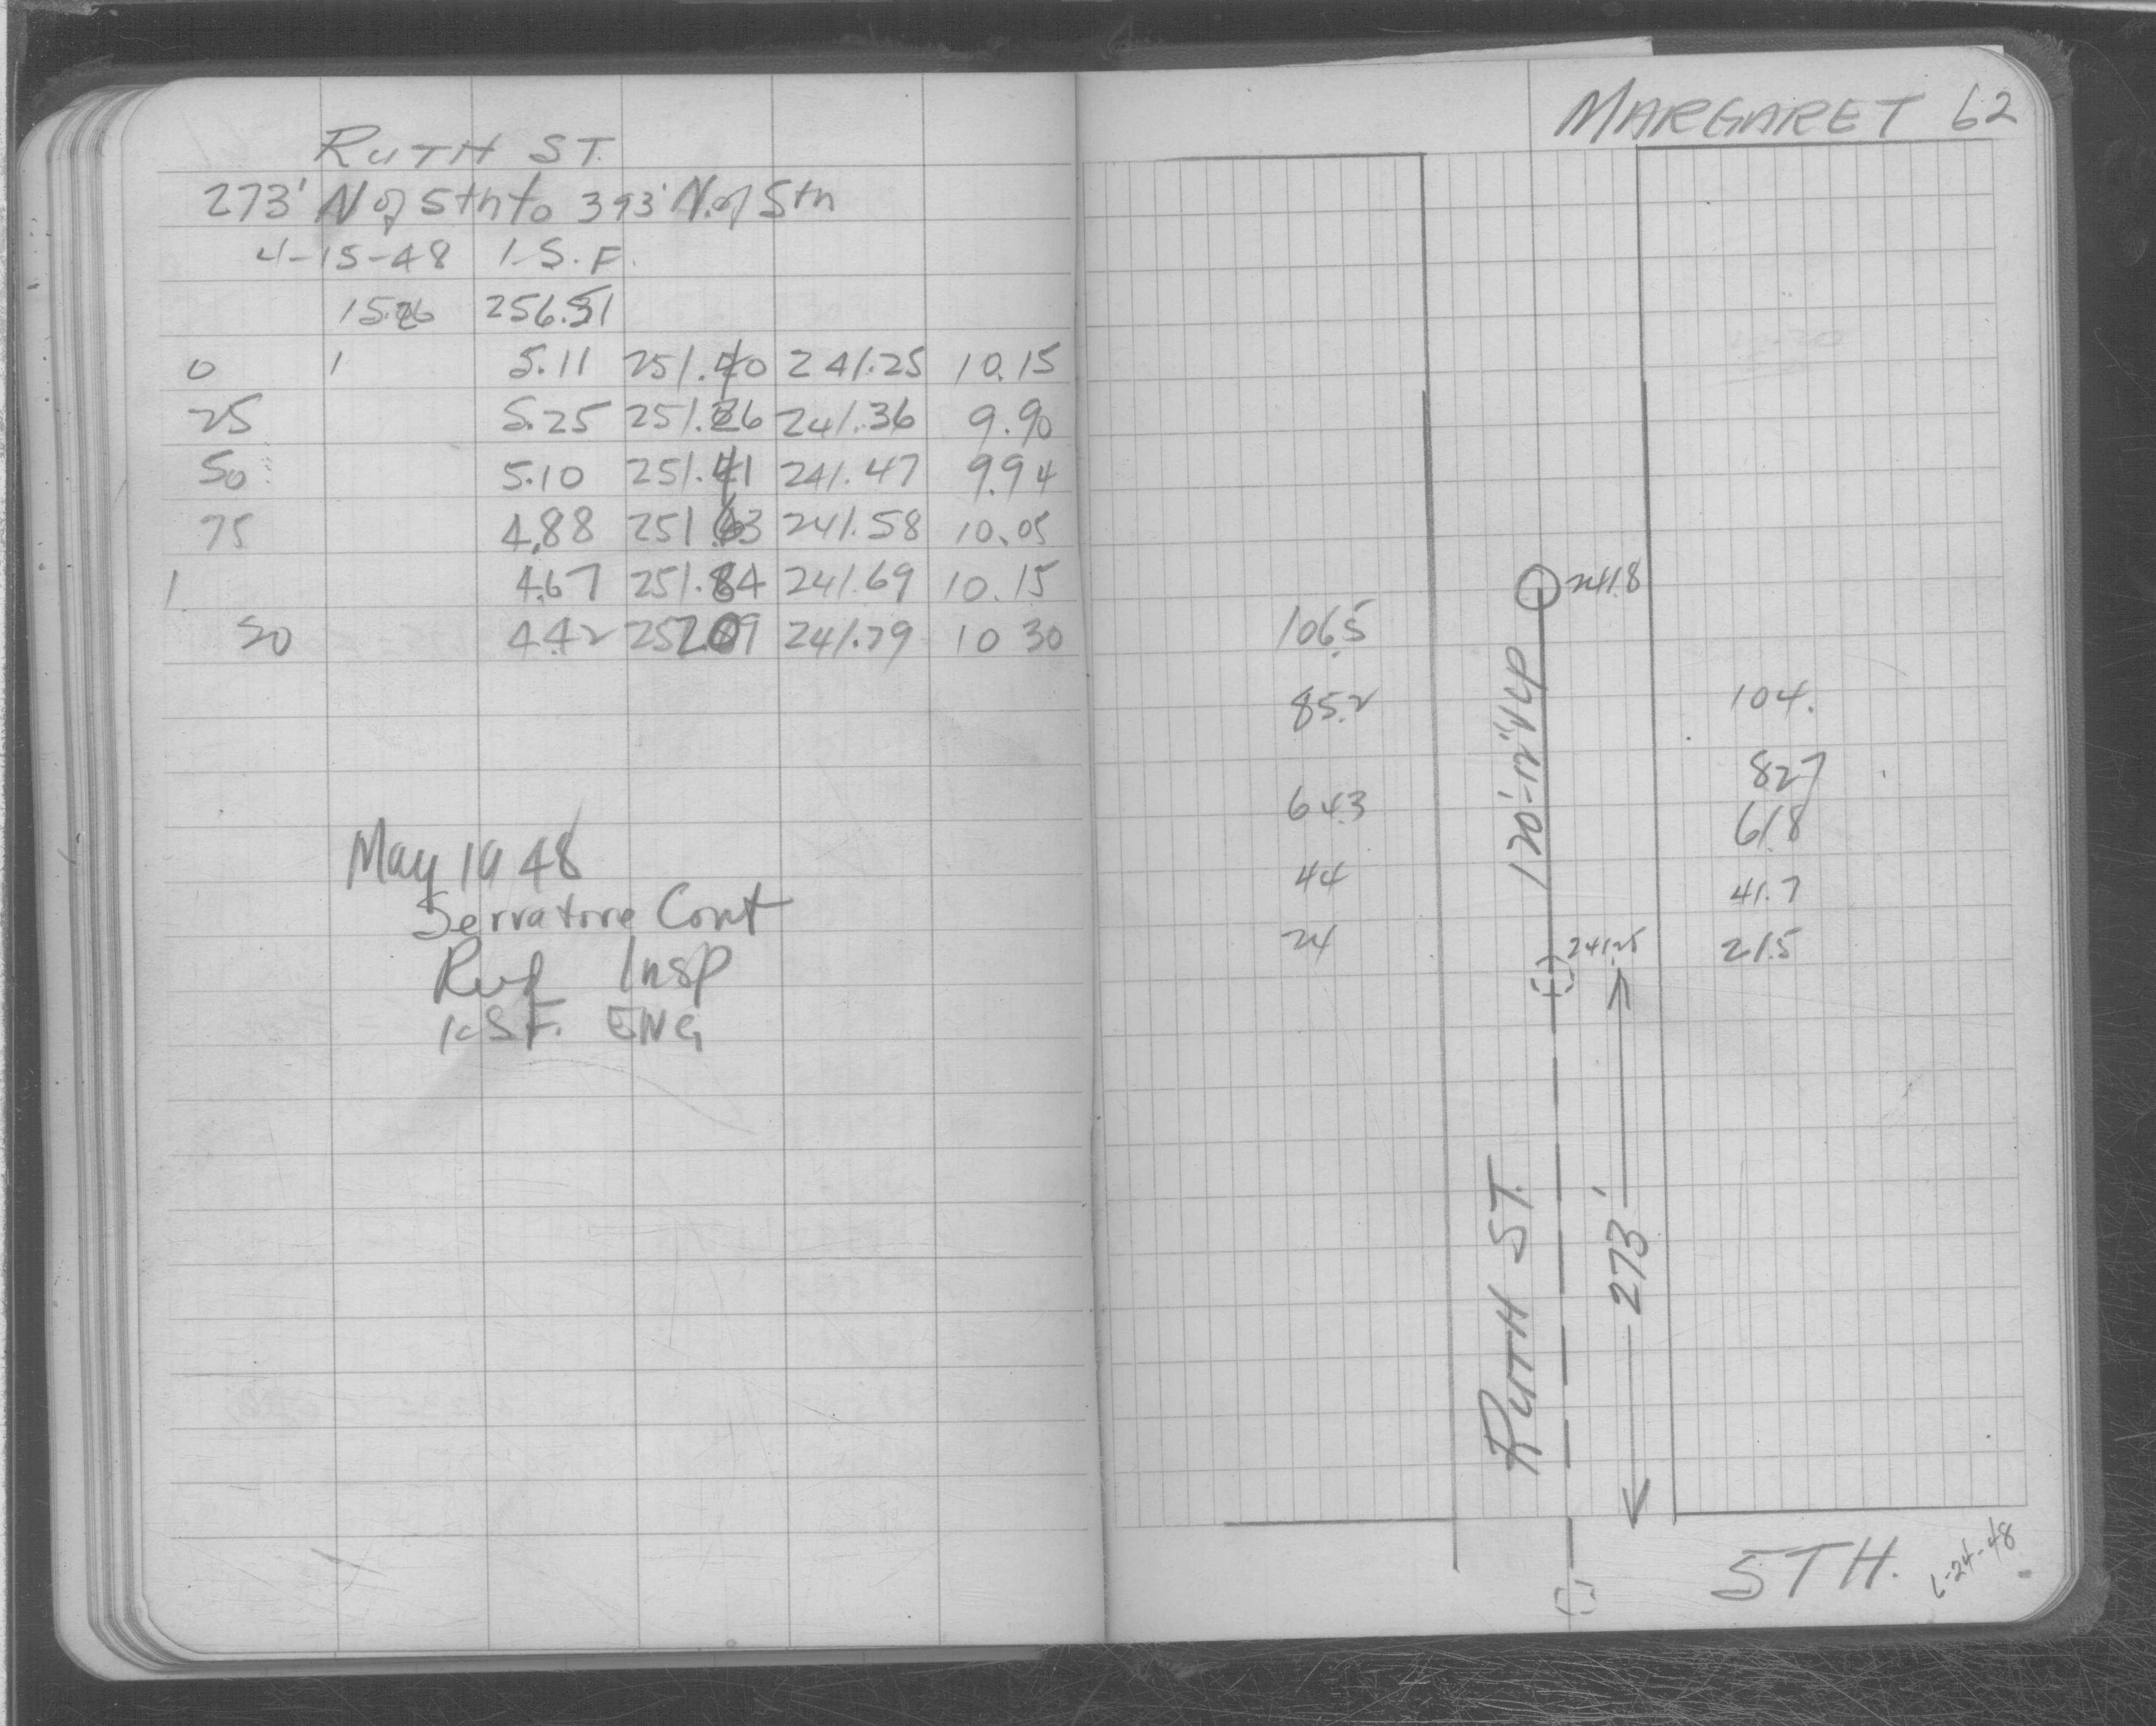 RUTH ST.
273' N of 5th to 393' N. of 5th
4-15-48 I.S.F.
15.26 256.51
0 1 5.11 251.40 241.25 10.15
25 5.25 251.26 241.36 9.90
50 5.10 251.41 241.47 9.94
75 4.88 251.63 241.58 10.05
1 4.67 251.84 241.69 10.15
20 4.42 252.09 241.79 10 30
May 19 48
Servatore Cont
Insp
I.S.F. ENG
MARGARET 62
241.8
106.5
85.2
64.3
44
24
120'-12" V.C.P
104.
82.7
61.8
41.7
21.5
241.25
273'
RUTH ST.
5TH.
6-24-48